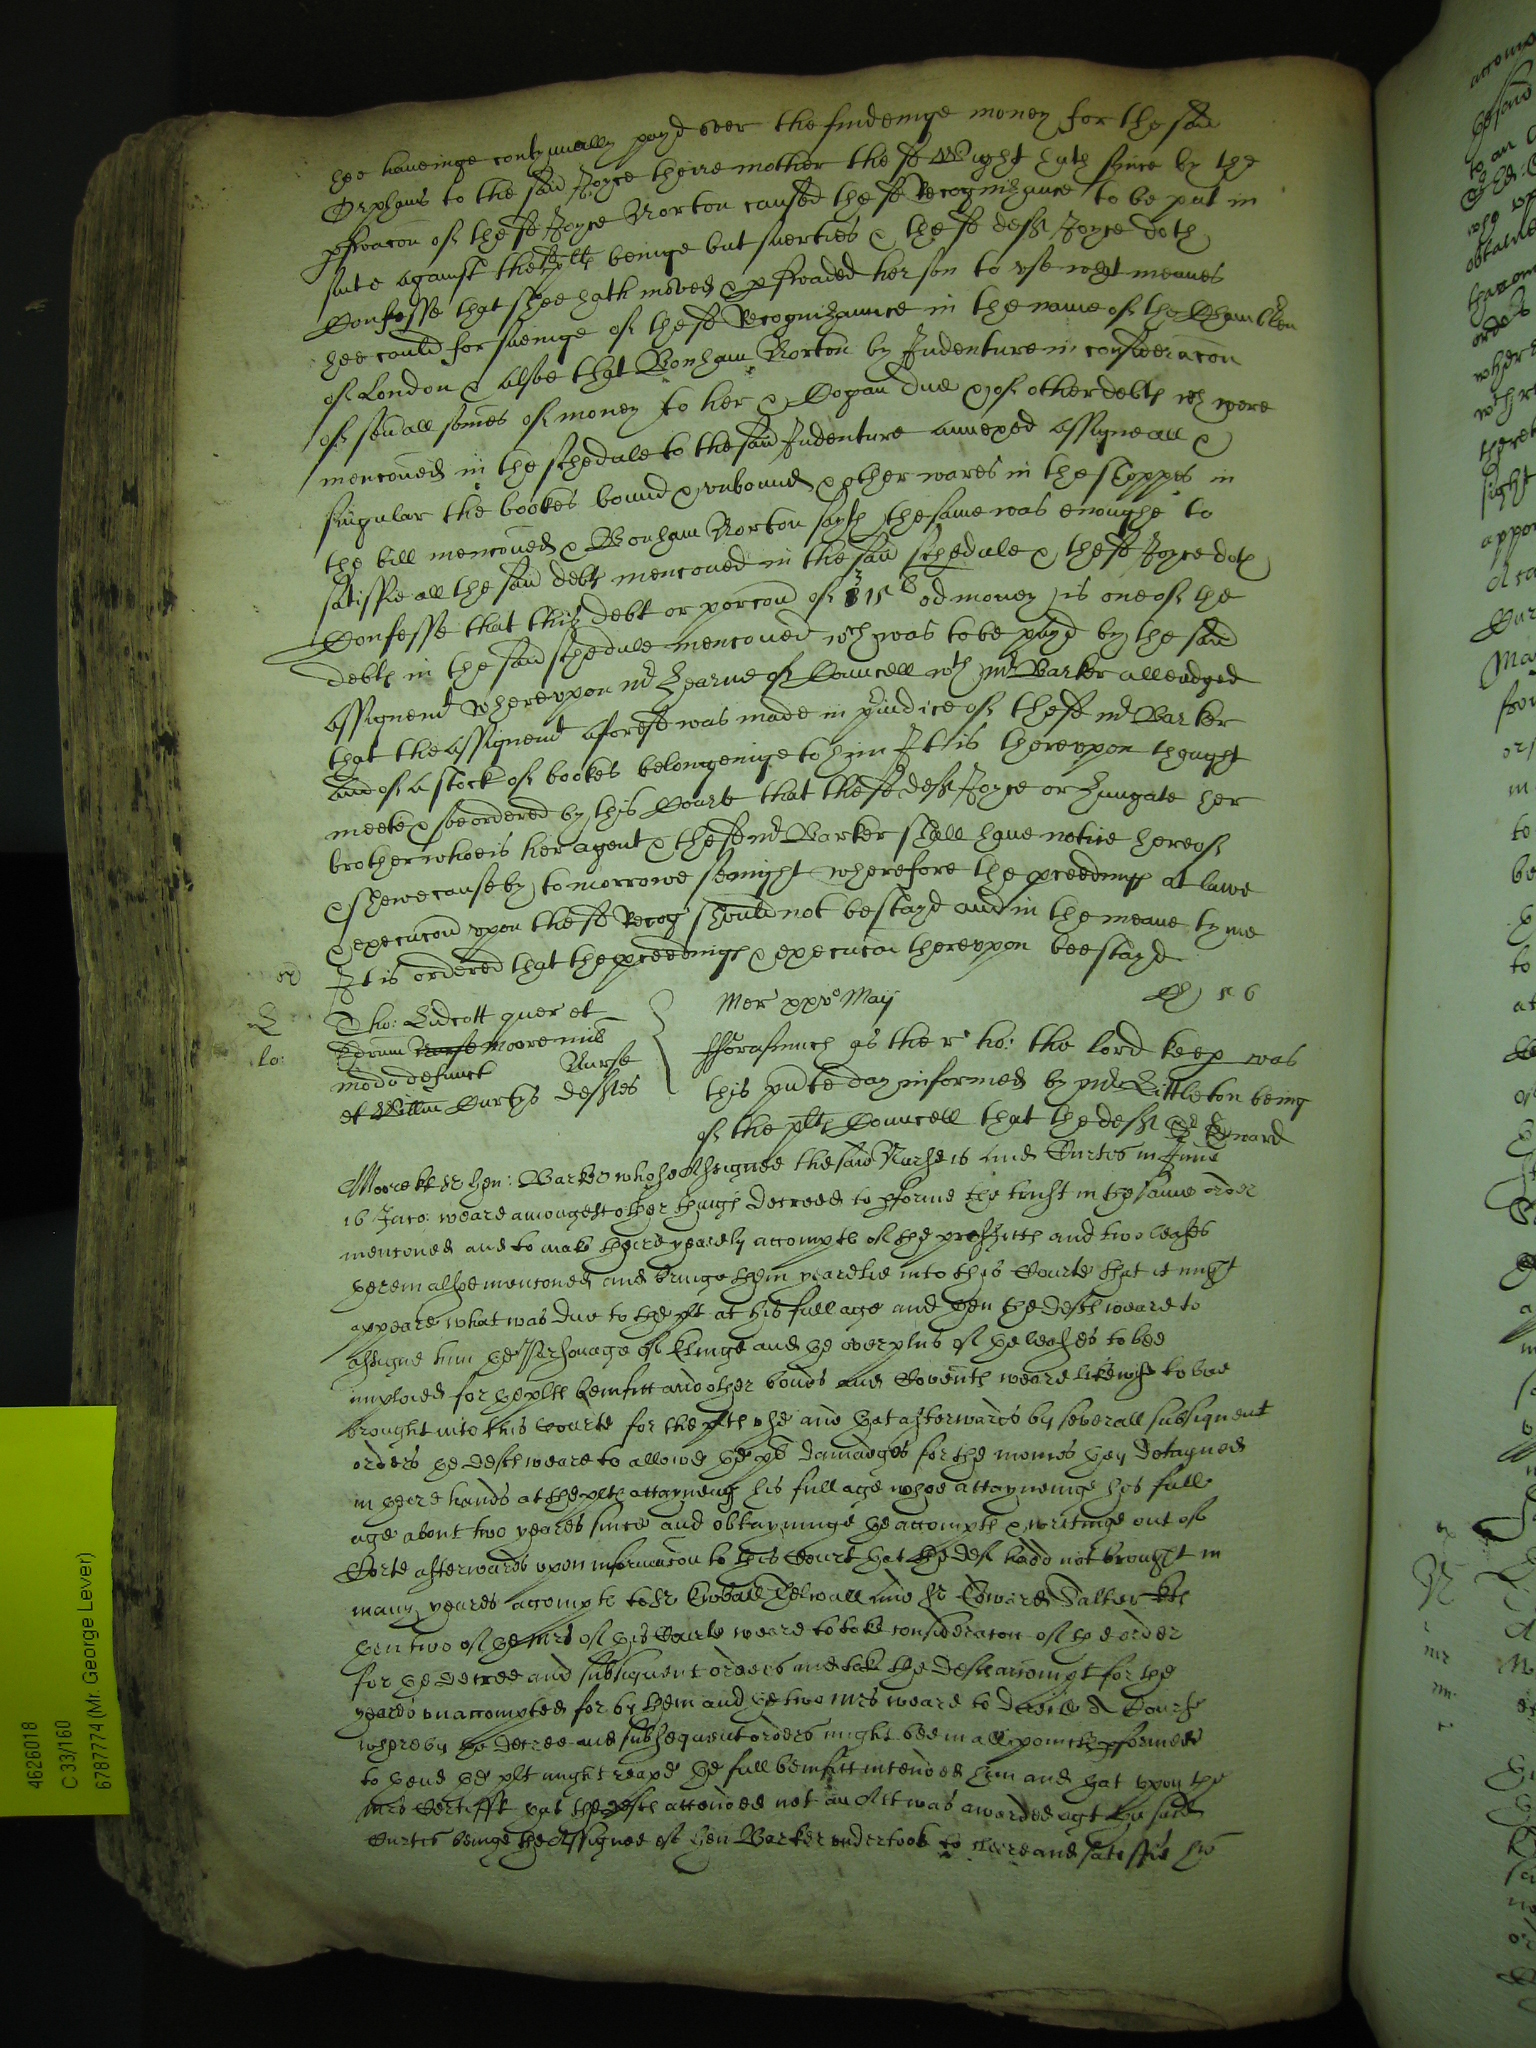 hee haveinge contynually payd over the findeinge money for the said
Orphans to the said Joyce theire mother the sd Wight hath since by the
pswacon of the sd Joyce Norton caused the sd Recognizance to be put in
suite against the plts beinge but suerties & the sd deft Joyce doth
Confesse that shee hath moved & pswaded her son to use what meanes
hee could for sueinge of the sd Recognizaunce in the name of the Chamblen
of London & alsoe that Bonham Norton by Indenture in consideracon
of sevall somes of money to her & Copan due & of other debts wch were
menconed in the schedule to the said Indenture annexed assigne all &
singular the bookes bound & unbound & other wares in the shoppes in
the bill menconed & Bonham Norton sayth the same was enoughe to
satisfie all the said debts menconed in the said schedule & the sd Joyce doth
Confesse that this debt or porcon of 315li od money is one of the
debts in the said schedule menconed wch was to be payd by the said
Assignemt whereupon Mr Hearne of Councell wth Mr Barker alleadged
that the Assignemt aforesd was made in piudice of the sd Mr Barker
and of a stock of bookes belongeinge to him It is thereupon thought
meete & soe ordered by this Court that the sd deft Joyce or Hungate her
brother whoe is her agent & the sd Mr Barker shall have notice hereof
& shewe cause by to morrowe senight wherefore the pceedings at lawe
& execucon upon the sd Recog should not be stayd and in the meane tyme
It is ordered that the pceedings & execucon thereupon bee stayd
Mer xxvo Maij
Tho: Lidcott quer et
Edrum Moore mil
modo defunct Nurse
et Willm Curtys deftes
Forasmuch as the rt ho: the lord keep was
this pnte day informed by Mr Littleton being
of the plts Councell that the deft Sr Edward
Moore kt & Hen: Barker whose Assignee the said Nurse is and Curtis in June
16 Jaco: weare amongest other things decreed to pforme the trust in the same order
menconed and to make theire yearely accompts of the proffitts and two leases
herein alsoe menconed and bringe them yearelie into this Courte that it might
appeare what was due to the plt at his full age and then the defts weare to
assigne him the parsonage of and the overplus of the leases to bee
imployed for the plts benifitt and other bonds and Covents weare likewise to bee
brought into this Courte for the plts use and that afterwards by severall subsiquent
orders the defts weare to allowe the plt damadges for the moneis they detayned
in theire hands at the plts attayneing his full age whoe attayneinge his full
age about two yeares since and obtayninge the accompts & writinge out of
Corte afterwards upon informacon to this Court that the deft hadd not brought in
many yeares accompts to Sr Euball Thelwall and Sr Edward Salter kts
then two of the Mrs of this Courte weare to take consideracon of the order
for the decree and subsiquent orders and take the defts accompt for the
yeares unaccompted for by them and the two Mrs weare to devise a Course
whereby the decree and subsequent orders might bee in all points pformed
to thend the plt might reape the full benifitt intended him and that upon the
Mrs Certifft that the defts attended not an Attt was awarded agt the said
Curtis beinge the Assignee of Hen Barker undertook to cleere and satisfie his
4626018
C 33/160
6787774 (Mr. George Lever)